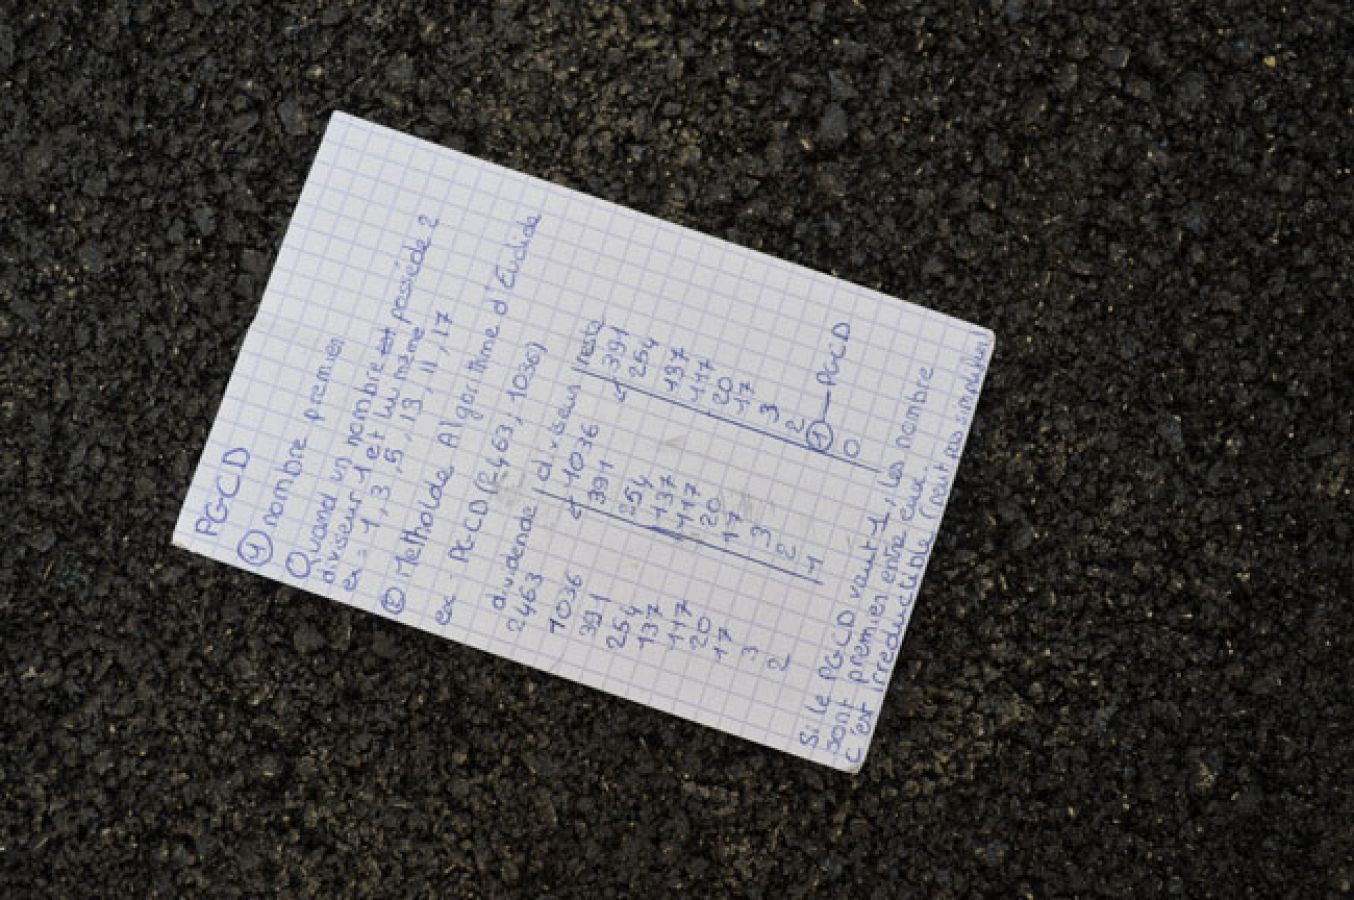 PGCD
① nombre premier
Quand un nombre est possiède 2
diviseur 1 et lui même
ex: 1, 3, 5, 13, 11, 17
② Metholde Algorithme d'Euclide
ex: PGCD (2463, 1036)
dividende | diviseur | reste
2463 1036 391
1036 391 254
391 254 137
254 137 117
137 117 20
117 20 17
20 17 3
17 3 2
3 2 ① — PGCD
2 1 0
Si le PGCD vaut 1, les nombre
sont premier entre eux
c'est irreductible (peut pas simplifier)